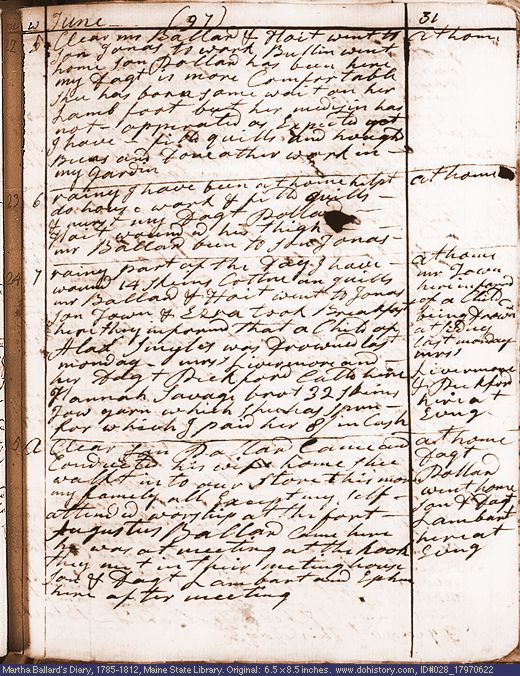 w June (97) 31
5 Clear mr Ballard & Hoit went to
Son Jonas to work
home Son Pollard has been here
my Dagt is more Comfortable
shee has born some wait on her
Lamb foot but her medisin has
not opperated as Expected yet
I have fild quills and hough
Beens and done other work in
my gardin
at home
23 6 rainy I have been at home helpt
do hous work & fild quills
& nurst my Dagt Pollard
Hoit wound his thigh
mr Ballard been to Son Jonas
at home
24 7 rainy part of the Day I have
wound 14 skeins Cotten on quills
mr Ballard & Hoit went to Jonas
Son Town & Ezra took Breakfast
here they informd that a Child of
was Drownd last
monday mrs Livermore and
her Dagt Pickford Calld here
Hannah Savage brot 32 skins
Tow yarn which shee has spun
for which I paid her 8/ in Cash
at home
mr Town
here informd
of a Child
being Drownd
at Sidney
last monday
mrs
Livermore
& Pickford
here at
Evng
A Clear Son Pollard Came and
Conducted his wife home shee
walkt in to our Store this morn
my family all Except my self
attended worship at the fort
Augustus Ballard Came here
he was at meeting at the hook
they met in their meting house
Son & Dagt Lambard and Ephm
here after meeting
at home
Dagt
Pollard
went home
Son & Dagt
Lambard
here at
Evng
Martha Ballard's Diary, 1785-1812, Maine State Library. Original: 6.5 x 8.5 inches. www.dohistory.com, ID#028_17970622